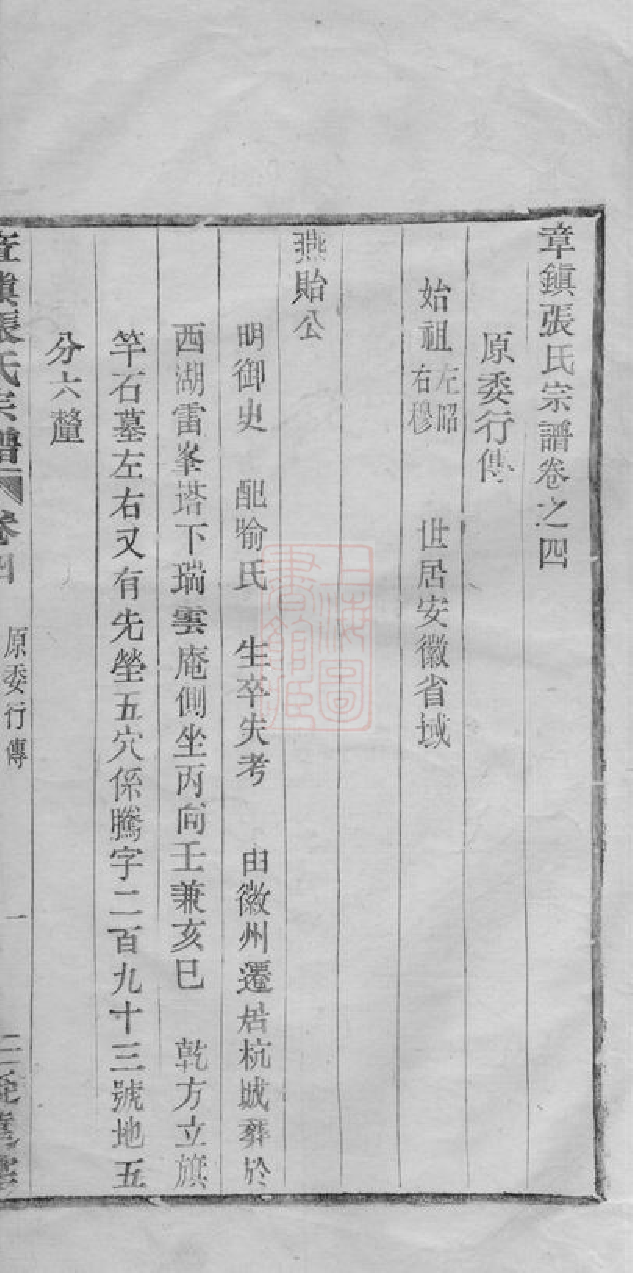 章鎭張氏宗譜卷之四
原委行傳
始祖 左昭 右穆 世居安徽省城
燕貽公
明御史 配喻氏 生卒失考 由徽州遷居杭城葬於
西湖雷峯塔下瑞雲庵側坐丙向壬兼亥巳 乾方立旗
竿石墓左右又有先塋五穴係騰字二百九十三號地五
分六釐
章鎭張氏宗譜 卷四 原委行傳 一
上海圖書館藏